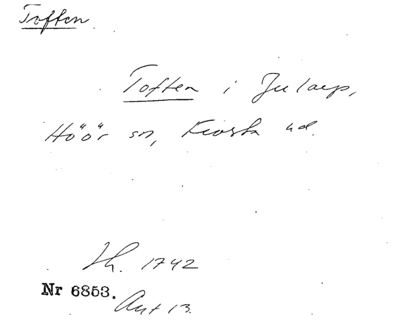 Toften.
Toften i Jularp,
Höör sn, Frosta hd.
Th. 1742
Nr 6853.
Ant 13.